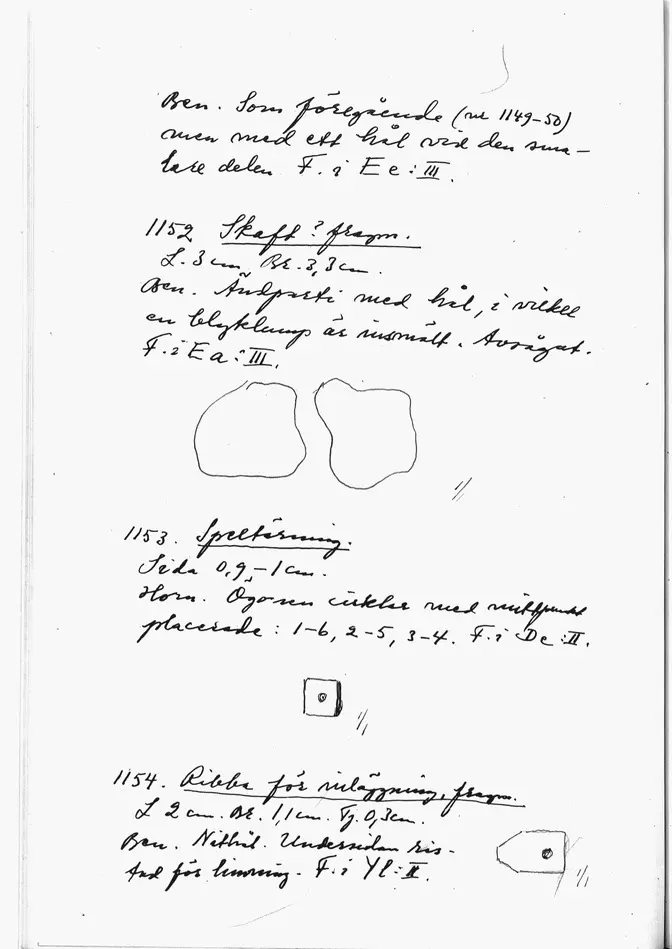 Ben. Som föregående (nr 1149-50)
men med ett hål vid den sma-
lare delen. F. i Ec:III.
1152 Skaft? fragm.
L. 3 cm, Br. 3,3 cm.
Ben. Ändparti med hål, i vilket
en blyklump är insmält. Avsågat.
F. i Ea:III.
1/1
1153. Speltärning.
Sida 0,9-1 cm.
Horn. Ögonen cirklar med mittpunkt
placerade: 1-6, 2-5, 3-4. F. i Dc:II.
1/1
1154. Ribba för inläggning, fragm.
L 2 cm. Br. 1,1 cm. Tj. 0,3 cm.
Ben. Nithål. Undersidan ris-
tad för limning. F. i Yl:II.
1/1